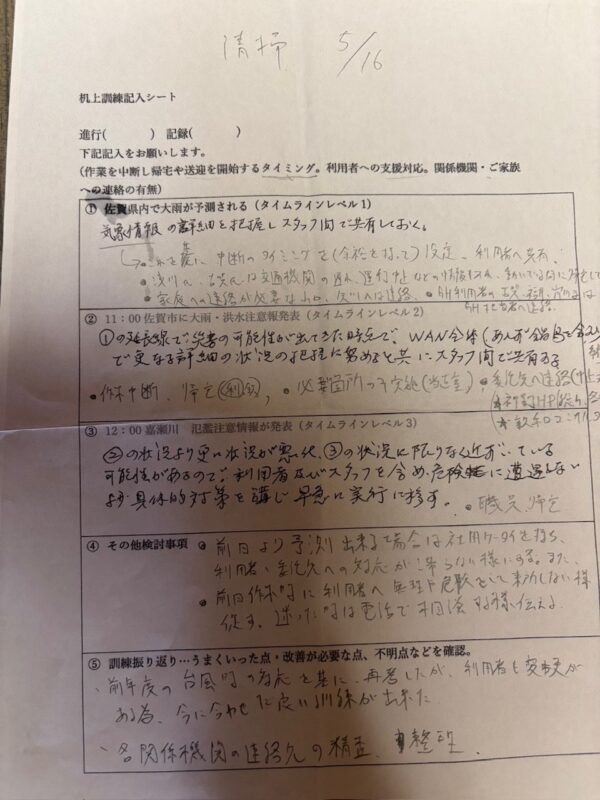 清掃 5/16
机上訓練記入シート
進行( ) 記録( )
下記記入をお願いします。
(作業を中断し帰宅や送迎を開始するタイミング。利用者への支援対応。関係機関・ご家族
への連絡の有無)
① 佐賀県内で大雨が予測される(タイムラインレベル1)
気象情報の詳細を把握しスタッフ間で共有しておく。
これを基に中断のタイミングを(余裕を持って)設定、利用者へ共有。
は交通機関の遅れ、運行中止などの
家庭への連絡が必要な
② 11:00 佐賀市に大雨・洪水注意報発表(タイムラインレベル2)
①の延長線で災害の可能性が出てきた時点で、WAN全体(
で更なる詳細の状況の把握に努めると共にスタッフ間で共有する
・作業中断、帰宅 ・必要箇所への ・委託先へ連絡
③ 12:00 嘉瀬川 氾濫注意情報が発表(タイムラインレベル3)
②の状況より更に状況が悪化、③の状況に限りなく近づいている
可能性があるので、利用者及びスタッフを含め、危険に遭遇しない
よう具体的対策を講じ早急に実行に移す。 ・職員 帰宅
④ その他検討事項 ・前日より予測出来る場合は社用ケータイを持ち、
利用者・委託先への対応が滞らない様にする。また、
・前日作業時に利用者へ無理や危険をして来所しない様
促す。迷った時は電話で相談する様伝える。
⑤ 訓練振り返り…うまくいった点・改善が必要な点、不明点などを確認。
、前年度の台風時の対応を基に、再考したが、利用者も変更が
ある為、今に合わせた良い訓練が出来た
、各関係機関の連絡先の精査、整理、